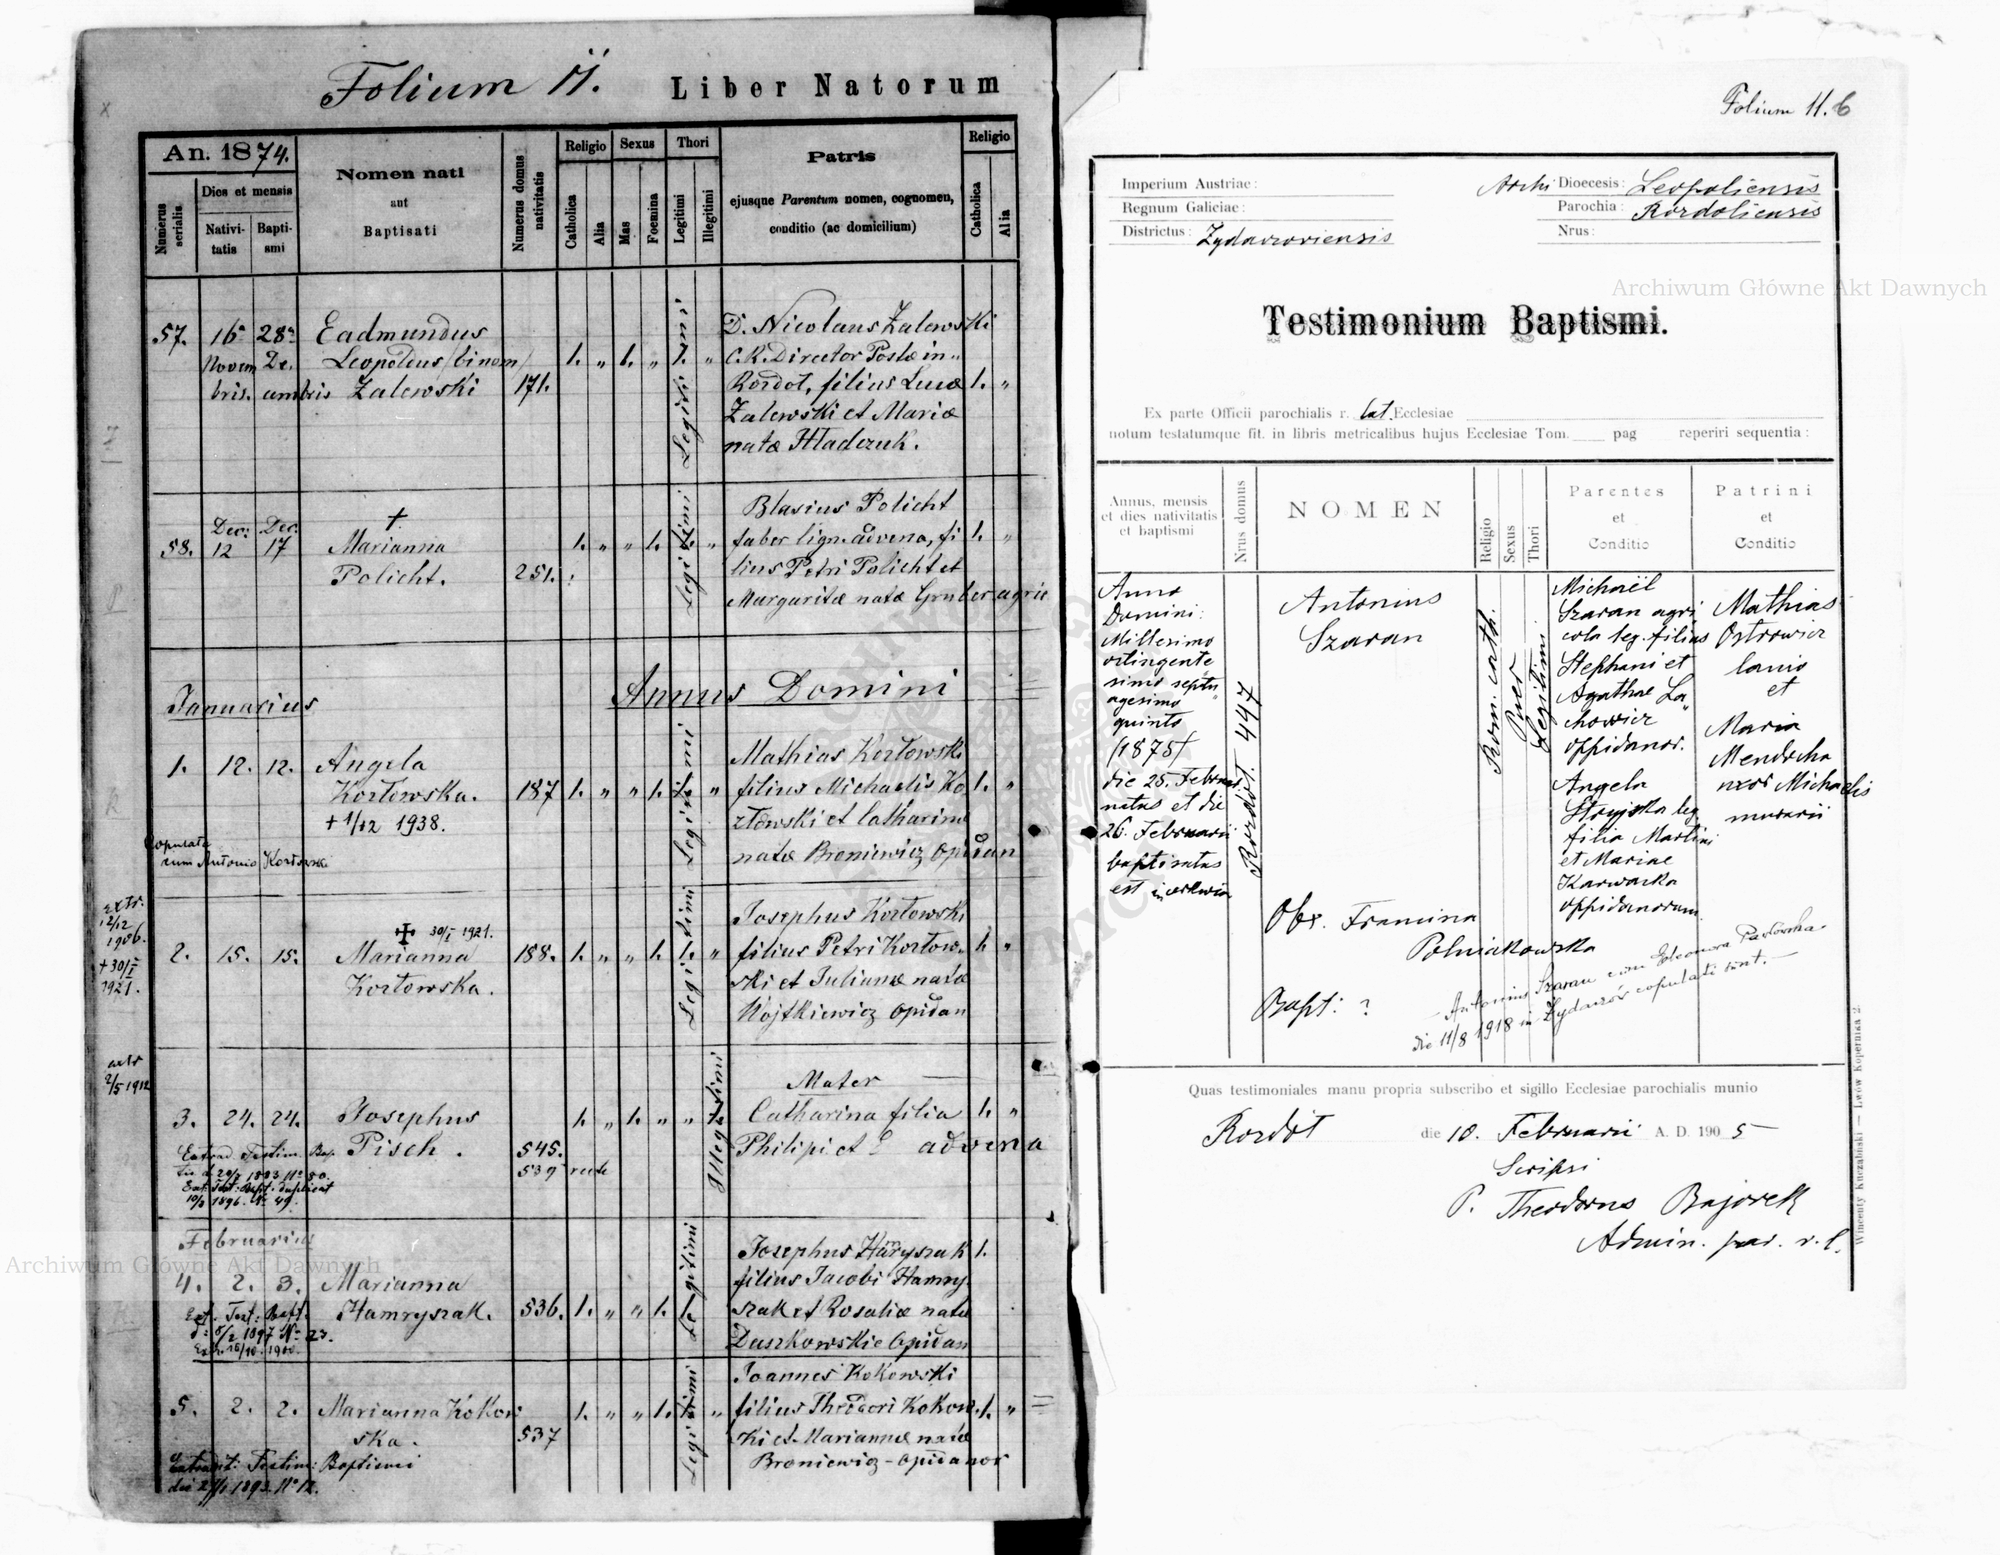 Folium 11. Liber Natorum
An. 1874.
Numerus serialis.
Dies et mensis
Nativitatis
Baptismi
Nomen nati
aut
Baptisati
Numerus domus nativitatis
Religio
Catholica
Alia
Sexus
Mas
Foemina
Thori
Legitimi
Illegitimi
Patris
ejusque Parentum nomen, cognomen,
conditio (ac domicilium)
Religio
Catholica
Alia
57. 16a 28a Eadmundus D. Nicolaus Zalewski
Novem De. Leopoldus (binom) 1. „ 1. „ 1. „ C. K. Director Postæ in
bris. cembris Zalewski 171. Rozdoł, filius Lucæ 1. „
Legitimi
Zalewski et Mariæ
natæ Hladczuk.
Dec: Dec: † Blasius Policht
58. 12 17 Marianna 1. „ „ 1. 1. „ faber lign. advena, fi 1. „
Policht. 251. lius Petri Policht et
Legitimi
Margaritæ natæ Gruber agric
Annus Domini
Januarius
1. 12. 12. Angela Mathias Kozłowski
Kozłowska. 187 1. „ „ 1. 1. „ filius Michaelis Ko 1. „
Legitimi
+ 1/12 1938. złowski et Catharinæ
Copulata
cum Antonio Kozłowski natæ Broniewicz opidan
extr.
12/12
1906.
+ 30/I
1921.
✠ 30/I 1921. Josephus Kozłowski
2. 15. 15. Marianna 188. 1. „ „ 1. 1. „ filius Petri Kozłow. 1. „
Kozłowska. ski et Julianæ natæ
Legitimi
Wojtkiewicz opidan
2/5 1912
Mater
3. 24. 24. Josephus 1. „ 1. „ „ 1. Catharina filia 1. „
Pisch. 545. Philipi et E advena
539 recte
Illegitimi
Extrad. Testim. Bap.
1883 No 80.
Ext. Test: Bapt. duplicat
10/8 1896. No 49.
Februarius Josephus Hamryszak 1.
4. 2. 3. Marianna filius Jacobi Hamry.
Hamryszak. 536. 1. „ „ 1. 1. szak et Rosaliæ natæ
Legitimi
Ext. Test: Bapt.
d: 8/2 1897 No 23.
Extr. 15/10. 1900.
Daszkowskie opidan
Joannes Kokowski
5. 2. 2. Marianna Kokow 1. „ „ 1. 1. „ filius Theodori Kokow. 1. „
ska. 537 ski et Mariannæ natæ
Legitimi
Extradit: Testim: Baptismi Broniewicz - opidanor
1893. No 12.
Folium 11. b
Imperium Austriae:
Regnum Galiciae:
Districtus: Zydaczoviensis
Archi Dioecesis: Leopoliensis
Parochia: Rozdoliensis
Nrus:
Testimonium Baptismi.
Ex parte Officii parochialis r. lat. Ecclesiae
notum testatumque fit. in libris metricalibus hujus Ecclesiae Tom. pag reperiri sequentia:
Annus, mensis
et dies nativitatis
et baptismi
Nrus domus
NOMEN
Religio
Sexus
Thori
Parentes
et
Conditio
Patrini
et
Conditio
Anno
Domini:
Millesimo
octingente
simo septu
agesimo
quinto
(1875)
die 25. Februar.
natus et die
26. Februarii
baptisatus
est in cerkwia
Rozdół. 447
Antonius
Szaran
Obs. Francina
Polniakowska
Bapt: ?
Antonius Szaran cum Eleonora Pawłowska
die 11/8 1918 in Zydaczów copulati sunt. —
Rom. cath.
Puer
Legitimi
Michaël
Szaran agri
cola leg. filius
Stephani et
Agathae La
chowicz
oppidanor.
Angela
Stryjska leg.
filia Martini
et Mariae
Karwacka
oppidanorum
Mathias
Ostrowicz
lanio
et
Maria
Mendocha
uxor Michaelis
murarii
Quas testimoniales manu propria subscribo et sigillo Ecclesiae parochialis munio
Rozdół die 10. Februarii A. D. 1905
Scripsi
P. Theodorus Bajorek
Admin. par. r. l.
Wincenty Kuczabiński — Lwów Kopernika 2.
Archiwum Główne Akt Dawnych
Archiwum Główne Akt Dawnych